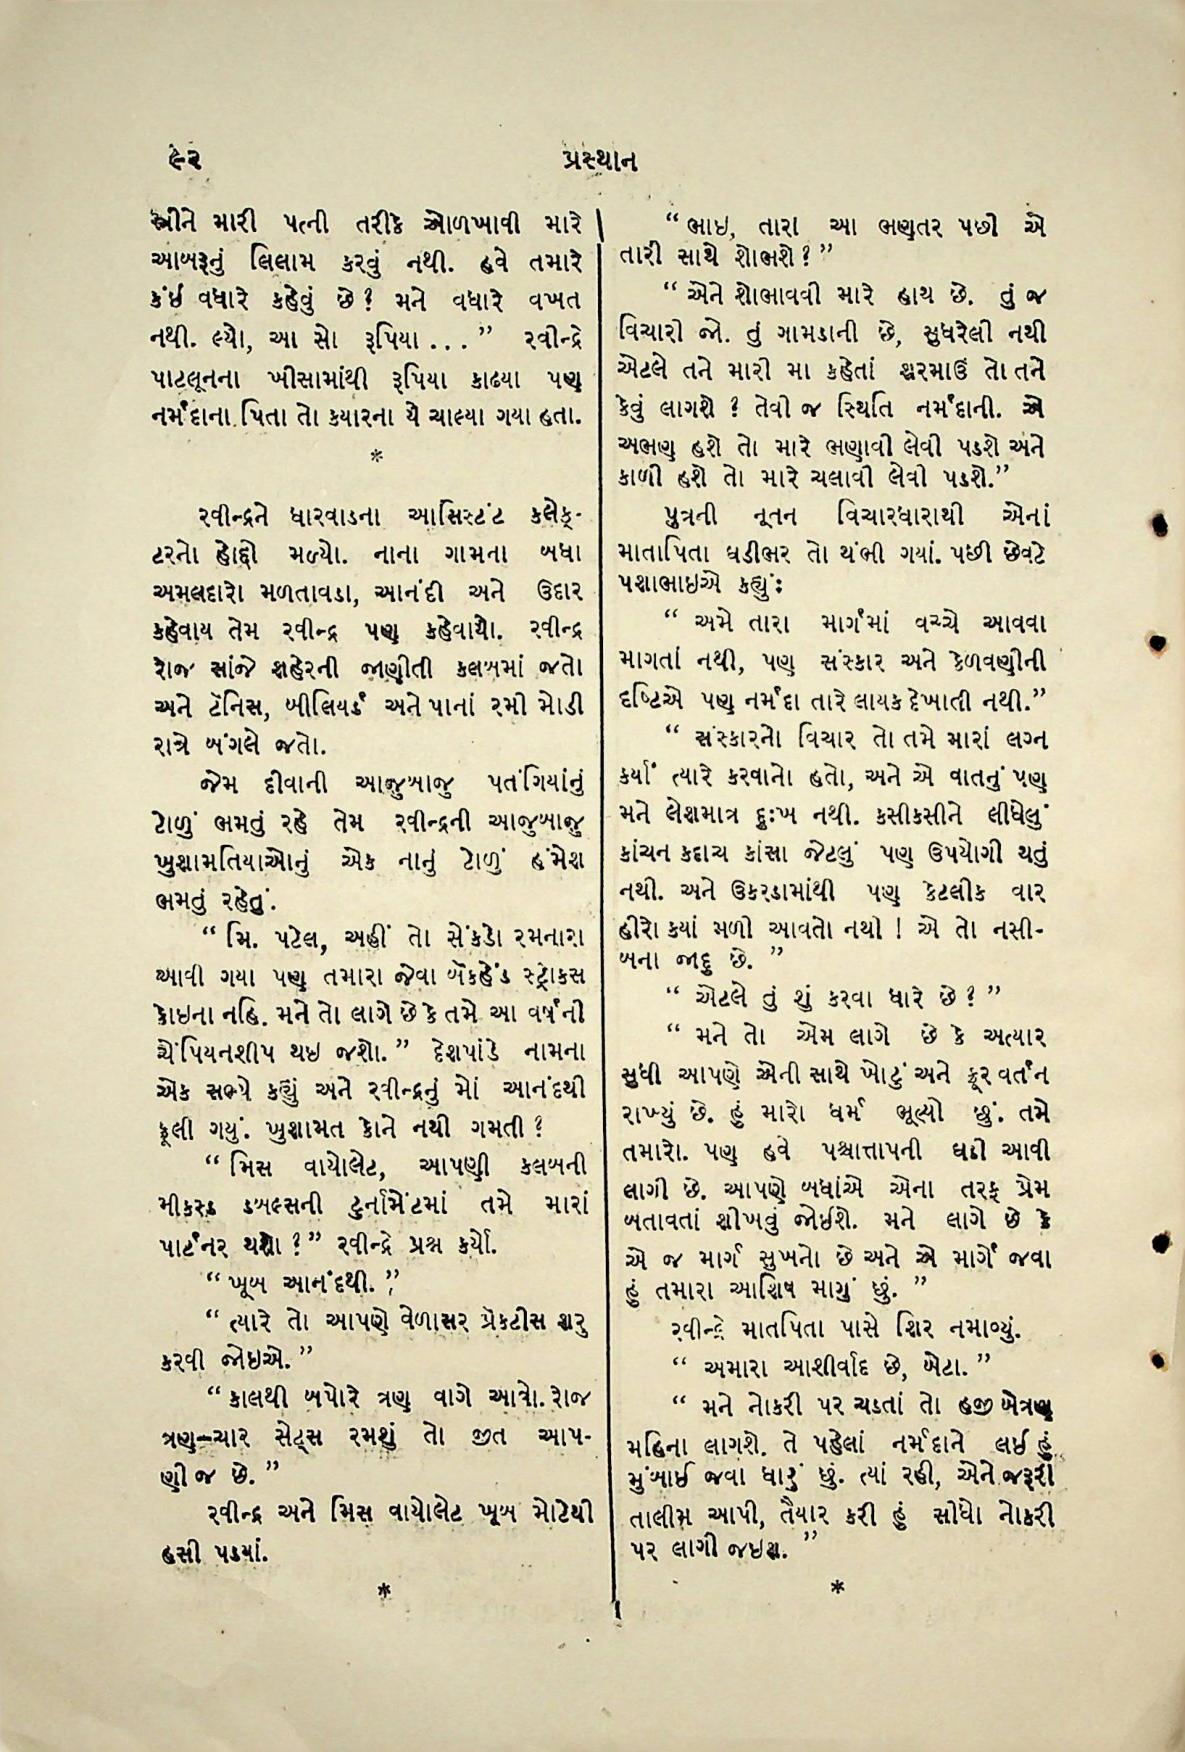 ૯૨
પ્રસ્થાન
સ્ત્રીને મારી પત્ની તરીકે ઓળખાવી મારે
આબરૂનું લિલામ કરવું નથી. હવે તમારે
કંઈ વધારે કહેવું છે? મને વધારે વખત
નથી. લ્યો, આ સો રૂપિયા...” રવીન્દ્રે
પાટલૂનના ખીસામાંથી રૂપિયા કાઢ્યા પણ
નર્મદાના પિતા તો ક્યારના યે ચાલ્યા ગયા હતા.
*
રવીન્દ્રને ધારવાડના આસિસ્ટંટ કલેક્-
ટરનો હોદ્દો મળ્યો. નાના ગામના બધા
અમલદારો મળતાવડા, આનંદી અને ઉદાર
કહેવાય તેમ રવીન્દ્ર પણ કહેવાયો. રવીન્દ્ર
રોજ સાંજે શહેરની જાણીતી કલબમાં જતો
અને ટૅનિસ, બીલિયર્ડ અને પાનાં રમી મોડી
રાત્રે બંગલે જતો.
જેમ દીવાની આજુબાજુ પતંગિયાંનું
ટોળું ભમતું રહે તેમ રવીન્દ્રની આજુબાજુ
ખુશામતિયાઓનું એક નાનું ટોળું હંમેશ
ભમતું રહેતું.
“મિ. પટેલ, અહીં તો સેંકડો રમનારા
આવી ગયા પણ તમારા જેવા બૅકહેંડ સ્ટ્રોકસ
કોઇના નહિ. મને તો લાગે છે કે તમે આ વર્ષની
ચેંપિયનશીપ થઇ જશો.” દેશપાંડે નામના
એક સભ્યે કહ્યું અને રવીન્દ્રનું મોં આનંદથી
ફૂલી ગયું. ખુશામત કોને નથી ગમતી?
“મિસ વાયોલેટ, આપણી કલબની
મીકસ્ડ ડબલ્સની ટુર્નામેંટમાં તમે મારાં
પાર્ટનર થશો?” રવીન્દ્રે પ્રશ્ન કર્યો.
“ખૂબ આનંદથી.”
“ત્યારે તો આપણે વેળાસર પ્રૅકટીસ શરુ
કરવી જોઇએ.”
“કાલથી બપોરે ત્રણ વાગે આવો. રોજ
ત્રણ—ચાર સેટ્સ રમશું તો જીત આપ-
ણી જ છે.”
રવીન્દ્ર અને મિસ વાયોલેટ ખૂબ મોટેથી
હસી પડ્યાં.
*
“ભાઇ, તારા આ ભણતર પછી એ
તારી સાથે શોભશે?”
“એને શોભાવવી મારે હાથ છે. તું જ
વિચારી જો. તું ગામડાની છે, સુધરેલી નથી
એટલે તને મારી મા કહેતાં શરમાઉં તો તને
કેવું લાગશે? તેવી જ સ્થિતિ નર્મદાની. એ
અભણ હશે તો મારે ભણાવી લેવી પડશે અને
કાળી હશે તો મારે ચલાવી લેવી પડશે.”
પુત્રની નૂતન વિચારધારાથી એનાં
માતાપિતા ઘડીભર તો થંભી ગયાં. પછી છેવટે
પશાભાઇએ કહ્યું:
“અમે તારા માર્ગમાં વચ્ચે આવવા
માગતાં નથી, પણ સંસ્કાર અને કેળવણીની
દષ્ટિએ પણ નર્મદા તારે લાયક દેખાતી નથી.”
“સંસ્કારનો વિચાર તો તમે મારાં લગ્ન
કર્યાં ત્યારે કરવાનો હતો, અને એ વાતનું પણ
મને લેશમાત્ર દુઃખ નથી. કસીકસીને લીધેલું
કાંચન કદાચ કાંસા જેટલું પણ ઉપયોગી થતું
નથી. અને ઉકરડામાંથી પણ કેટલીક વાર
હીરો ક્યાં મળી આવતો નથી! એ તો નસી-
બના જાદુ છે.”
“એટલે તું શું કરવા ધારે છે?”
“મને તો એમ લાગે છે કે અત્યાર
સુધી આપણે એની સાથે ખોટું અને ક્રૂર વર્તન
રાખ્યું છે. હું મારો ધર્મ ભૂલ્યો છું. તમે
તમારો. પણ હવે પશ્ચાત્તાપની ઘડી આવી
લાગી છે. આપણે બધાંએ એના તરફ પ્રેમ
બતાવતાં શીખવું જોઈશે. મને લાગે છે કે
એ જ માર્ગ સુખનો છે અને એ માર્ગે જવા
હું તમારા આશિષ માગું છું.”
રવીન્દ્રે માતપિતા પાસે શિર નમાવ્યું.
“અમારા આશીર્વાદ છે, બેટા.”
“મને નોકરી પર ચડતાં તો હજી બેત્રણ
મહિના લાગશે. તે પહેલાં નર્મદાને લઈ હું
મુંબાઈ જવા ધારું છું. ત્યાં રહી, એને જરૂરી
તાલીમ આપી, તૈયાર કરી હું સીધો નોકરી
પર લાગી જઇશ.”
*